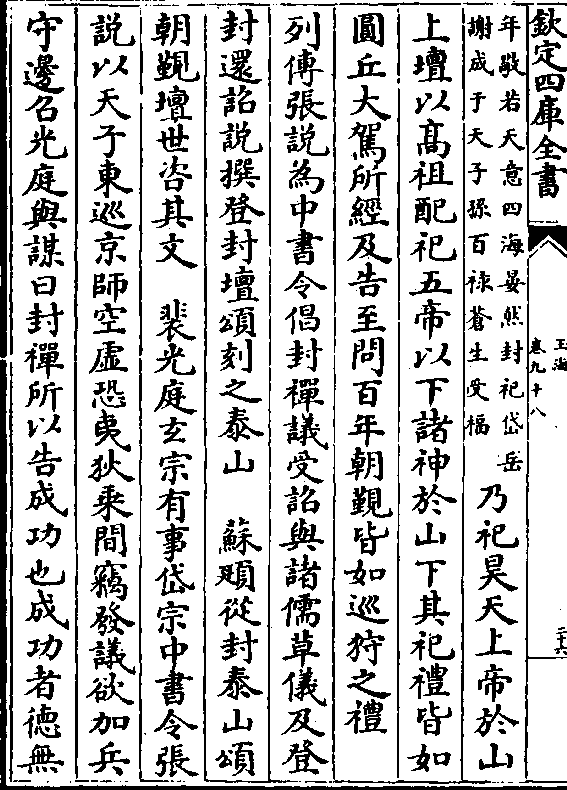 欽定四庫全書
玉海
卷九十八
二十六
年敬若天意四海晏然封祀岱岳
謝成于天子孫百祿蒼生受福
乃祀昊天上帝於山
上壇以髙祖配祀五帝以下諸神於山下其祀禮皆如
圓丘大駕所經及告至問百年朝覲皆如巡狩之禮
列傳張說為中書令倡封禪議受詔與諸儒草儀及登
封還詔說撰登封壇頌刻之泰山　蘇頲從封泰山頌
朝覲壇世咨其文　裴光庭玄宗有事岱宗中書令張
說以天子東巡京師空虛恐夷狄乘間竊發議欲加兵
守邊召光庭與謀曰封禪所以告成功也成功者德無